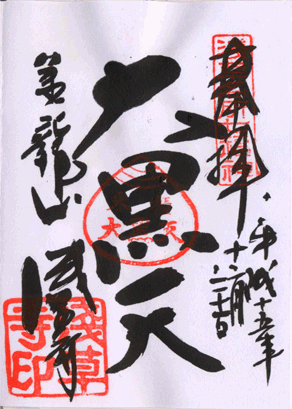 奉拝
平成十五年
十二月
大黒天
金龍山
浅草寺
淺草寺印